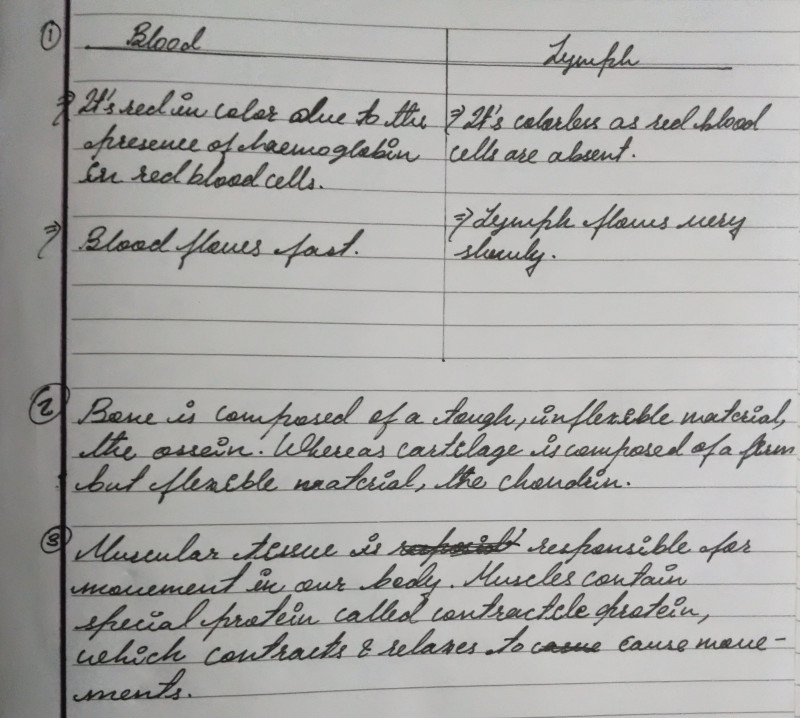 ① Blood | Lymph
⇒ It's red in color due to the | ⇒ It's colorless as red blood
presence of haemoglobin | cells are absent.
in red blood cells.
⇒ Blood flows fast. | ⇒ Lymph flows very
slowly.
② Bone is composed of a tough, inflexible material,
the ossein. Whereas cartilage is composed of a firm
but flexible material, the chondrin.
③ Muscular tissue is responsible for
movement in our body. Muscles contain
special protein called contractile protein,
which contracts & relaxes to cause move-
ments.